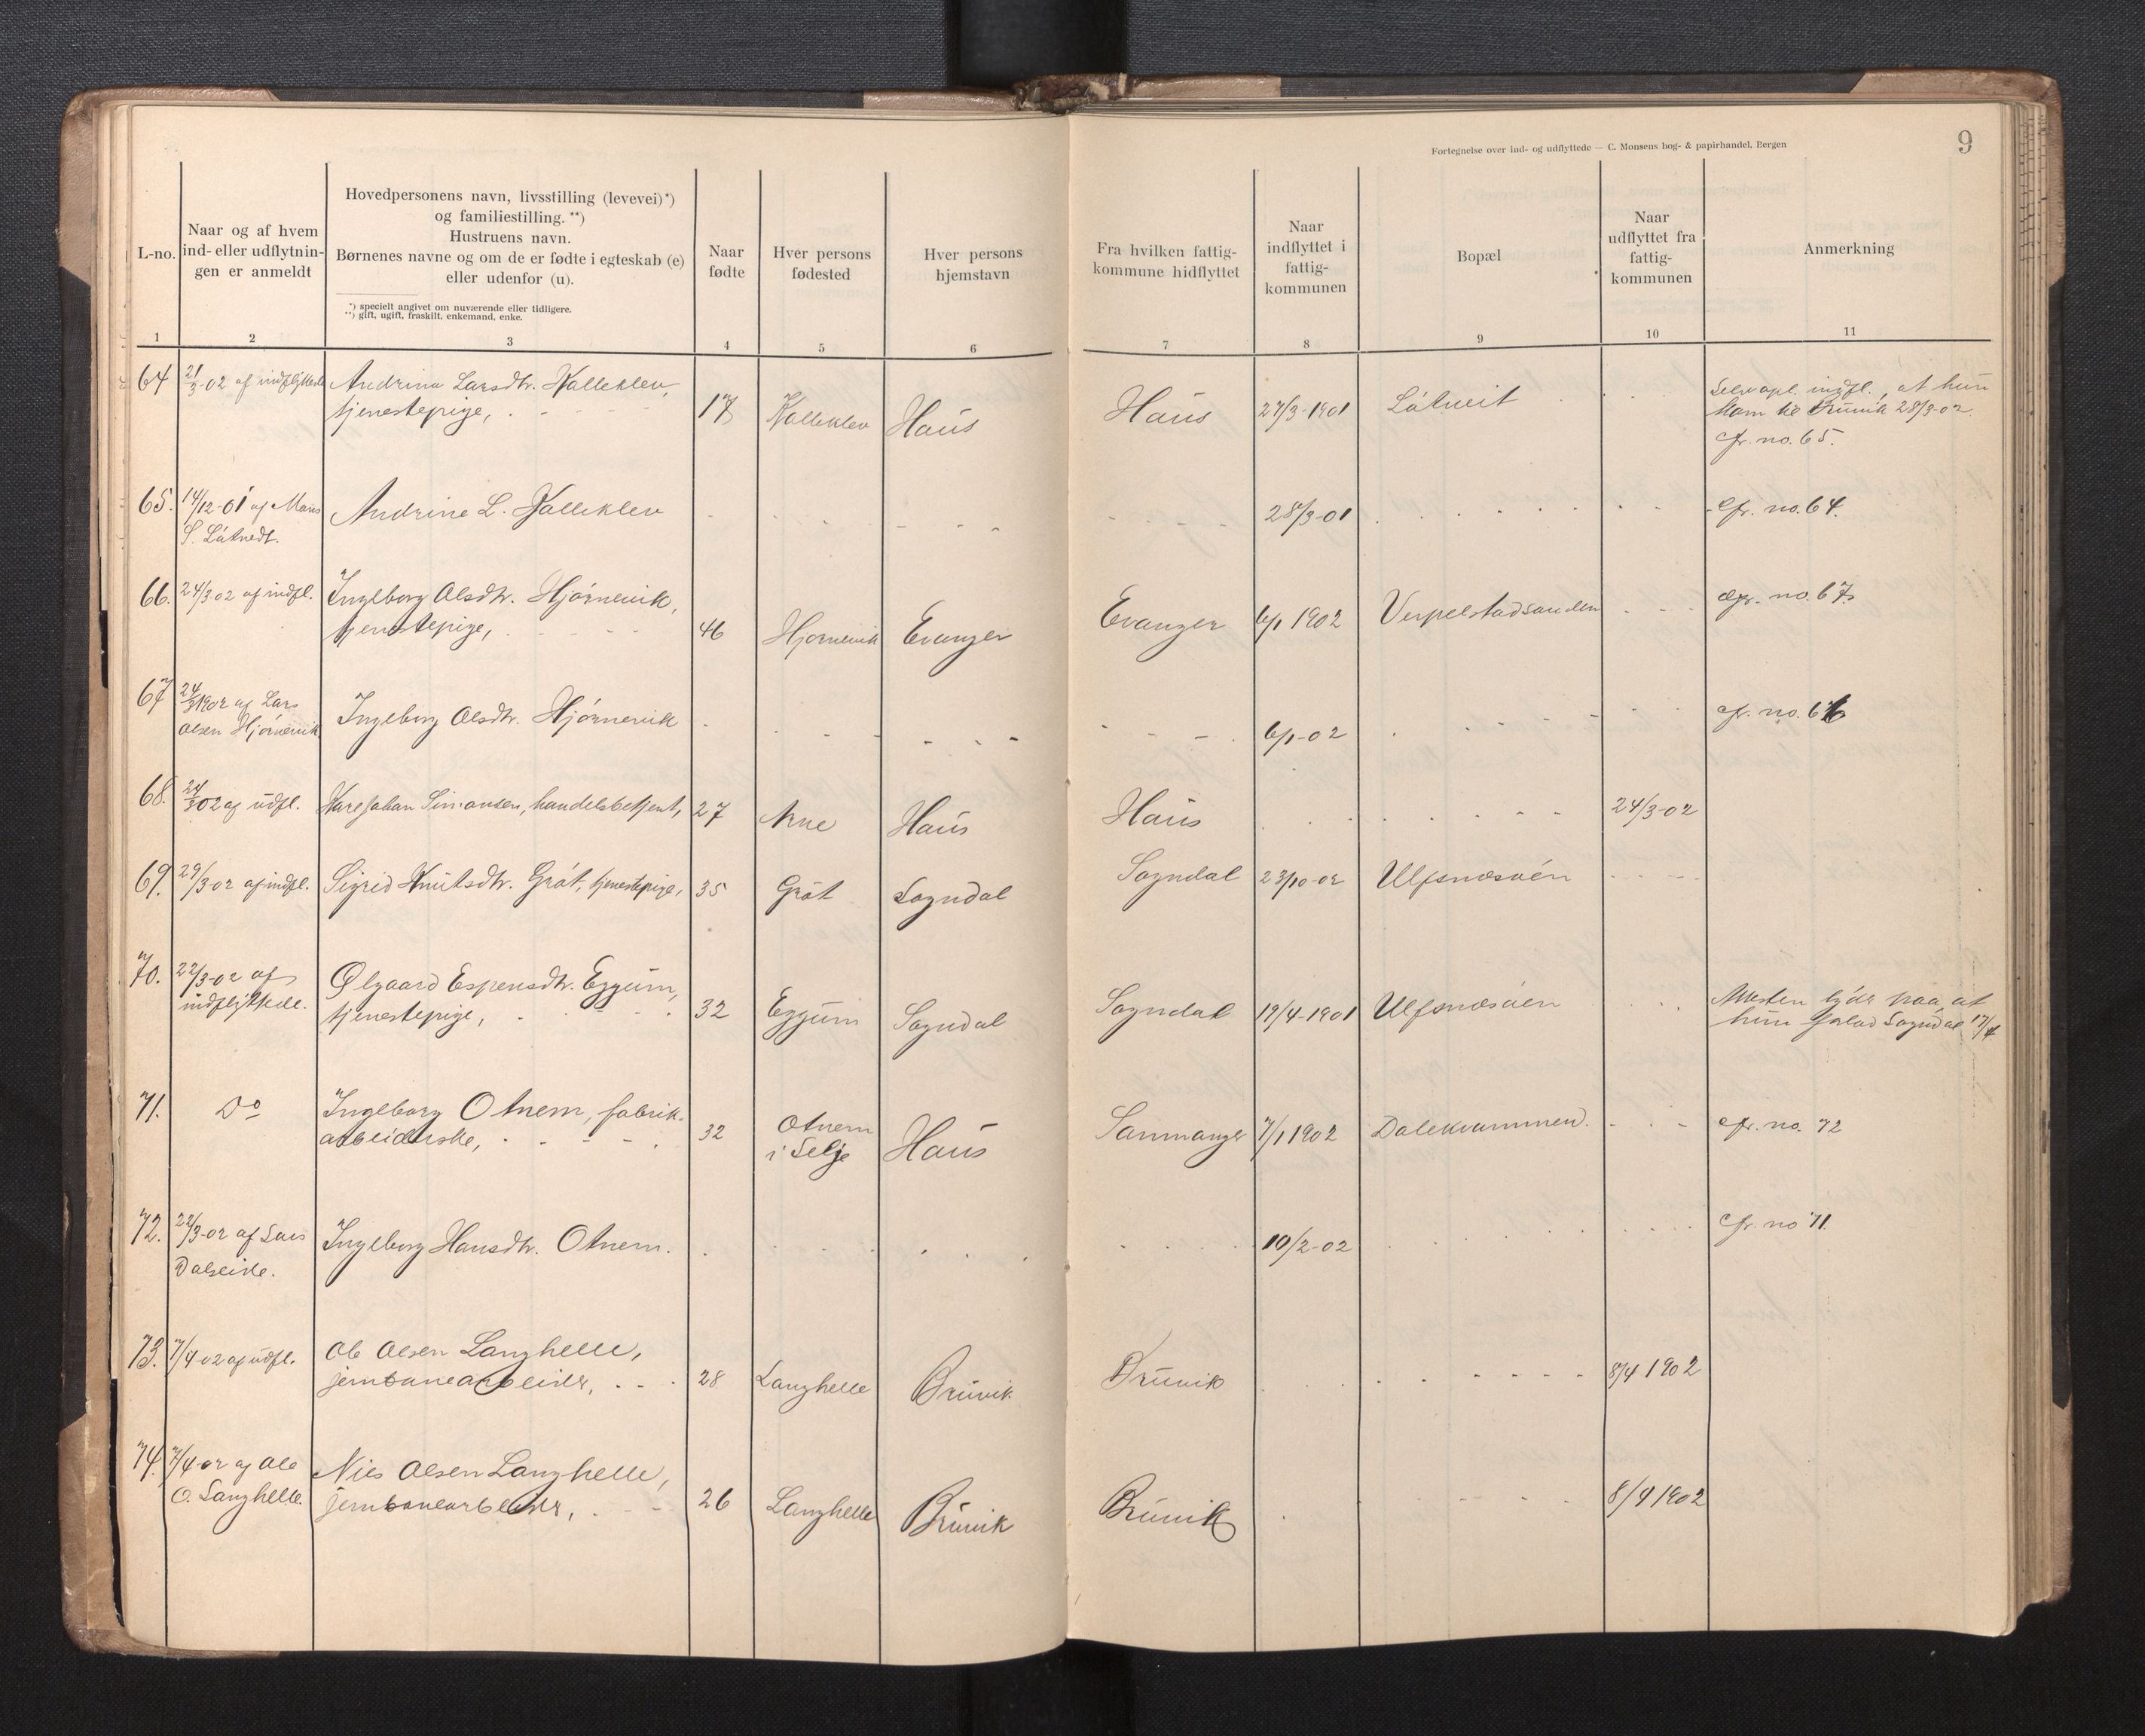 Fortegnelse over ind- og udflyttede — C. Monsens bog- & papirhandel, Bergen
9
L-no.
Naar og af hvem
ind- eller udflytnin-
gen er anmeldt
Hovedpersonens navn, livsstilling (levevei)*)
og familiestilling. **)
Hustruens navn.
Børnenes navne og om de er fødte i egteskab (e)
eller udenfor (u).
*) specielt angivet om nuværende eller tidligere.
**) gift, ugift, fraskilt, enkemand, enke.
Naar
fødte
Hver persons
fødested
Hver persons
hjemstavn
Fra hvilken fattig-
kommune hidflyttet
Naar
indflyttet i
fattig-
kommunen
Bopæl
Naar
udflyttet fra
fattig-
kommunen
Anmerkning
1 2 3 4 5 6 7 8 9 10 11
64 21/3-02 af indflyttede Andrina Larsdtr. Kalleklev,
tjenestepige, 17 Kalleklev Haus Haus 27/3-1901 Låtveit
indfl., at hun
kom til Bruvik 28/3-02
cfr. no. 65.
65. 14/12-01 af Mons
S. Andrine L. Kalleklev 28/3-01 cfr. no. 64.
66. 24/3 02 af indfl. Ingeborg Olsdtr. Hjørnevik,
tjenestepige, 46 Hjørnevik Evanger Evanger 6/1 1902 Verpelstadsanden cfr. no. 67.
67 24/3 1902 af Lars
Olsen Hjørnevik Ingeborg Olsdtr. Hjørnevik 6/1-02 cfr. no. 66
68. 24/3 02 af udfl. Johan Simonsen, handelsbetjent, 27 Arne Haus Haus 24/3-02
69. 29/3-02 af indfl. Sigrid Knutsdtr. Grøt, tjenestepige, 35 Grøt Sogndal Sogndal 23/10-02 Ulfsnesøen
70. 22/3-02 af
indflyttede. Ølgaard Espensdtr. Eggum,
tjenestepige, 32 Eggum Sogndal Sogndal 19/4-1901 Ulfsnesøen
Attesten lyder paa, at
hun forlod Sogndal 17/4
71. Do Ingeborg Otnem, fabrik-
arbeiderske, 32 Otnem
i Selje Haus Sammanger 7/1 1902 Dalekvammen. cfr. no. 72
72. 22/3-02 af Lars
Dalseide. Ingeborg Hansdtr. Otnem. 10/2-02 cfr. no 71
73. 7/4-02 af udfl. Ole Olsen Langhelle,
jernbanearbeider, 28 Langhelle Bruvik Bruvik 8/4 1902
74. 7/4-02 af Ole
O. Langhelle. Nils Olsen Langhelle,
jernbanearbeider, 26 Langhelle Bruvik Bruvik 8/4 1902